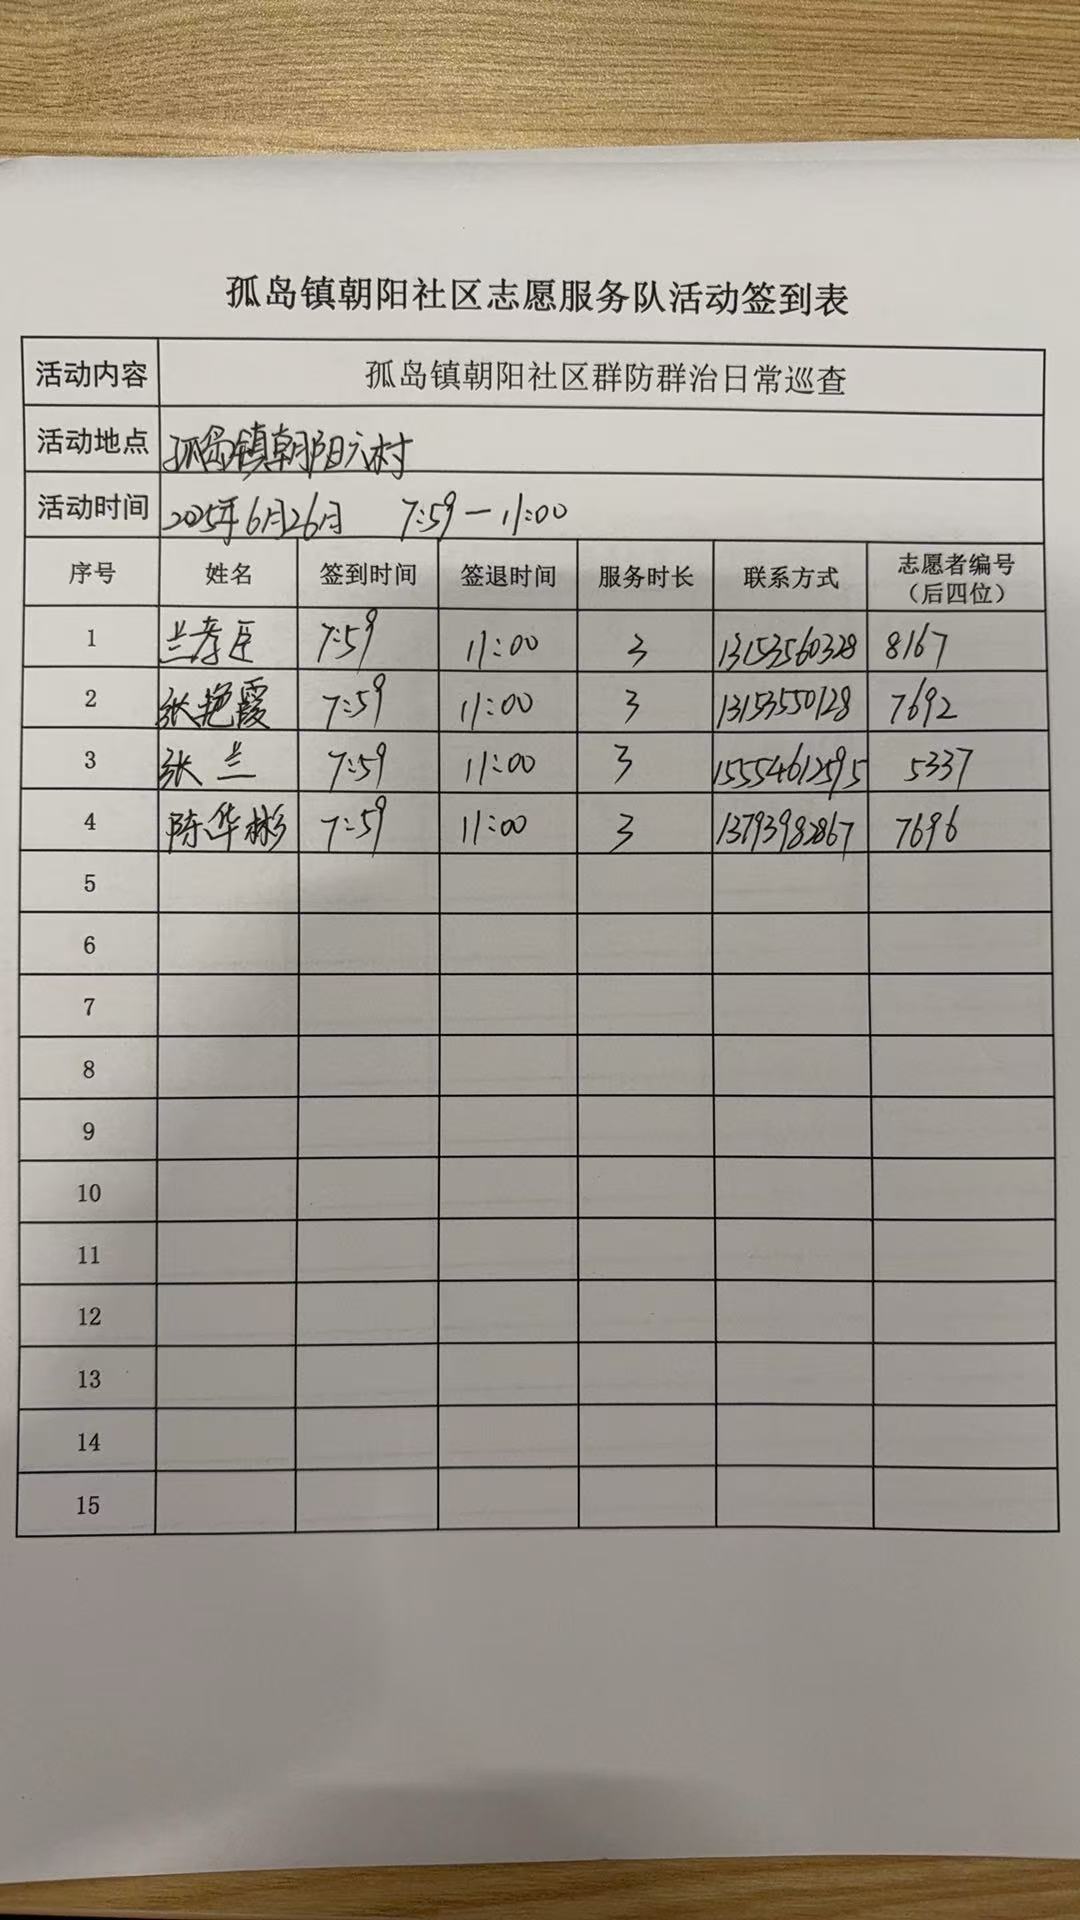 孤岛镇朝阳社区志愿服务队活动签到表
活动内容 孤岛镇朝阳社区群防群治日常巡查
活动地点 孤岛镇朝阳六村
活动时间 2025年6月26日 7:59—11:00
序号 姓名 签到时间 签退时间 服务时长 联系方式 志愿者编号（后四位）
1 兰孝臣 7:59 11:00 3 13153560328 8167
2 张艳霞 7:59 11:00 3 13153550128 7692
3 张兰 7:59 11:00 3 15554612595 5337
4 陈华彬 7:59 11:00 3 13793982867 7696
5
6
7
8
9
10
11
12
13
14
15